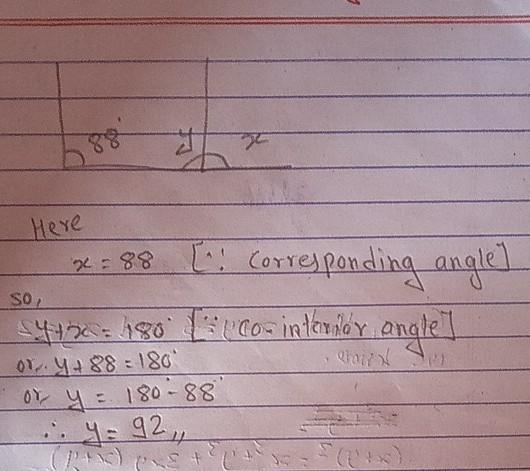 88°
y x
Here
x = 88 [∵ corresponding angle]
so,
y+x = 180° [∵ co-interior angle]
or, y + 88 = 180°
or, y = 180° - 88°
∴ y = 92,,